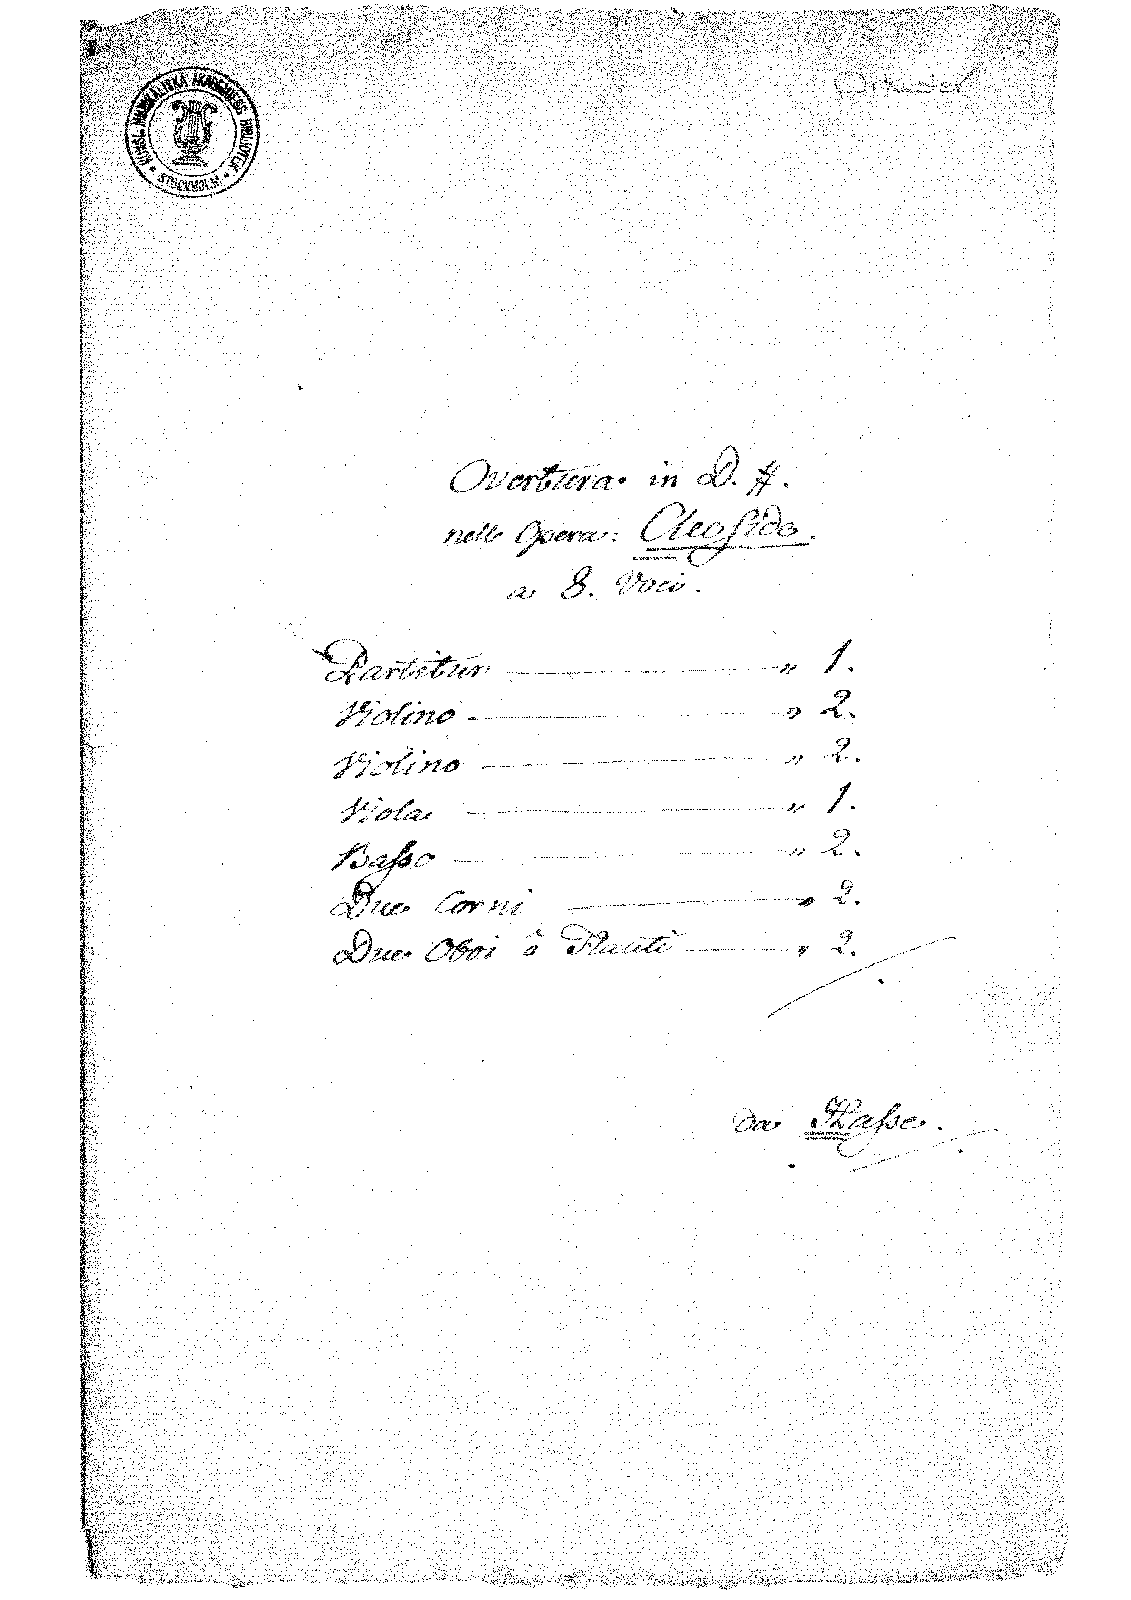 KUNGL. MUSIKALISKA AKADEMIENS BIBLIOTEK • STOCKHOLM •
Overtura. in D. #.
nell Opera: Cleofide.
a 8. Voci.
Partitur " 1.
Violino " 2.
Violino " 2.
Viola " 1.
Basso " 2.
Due Corni " 2.
Due Oboi ô Flauti " 2.
Da Hasse.